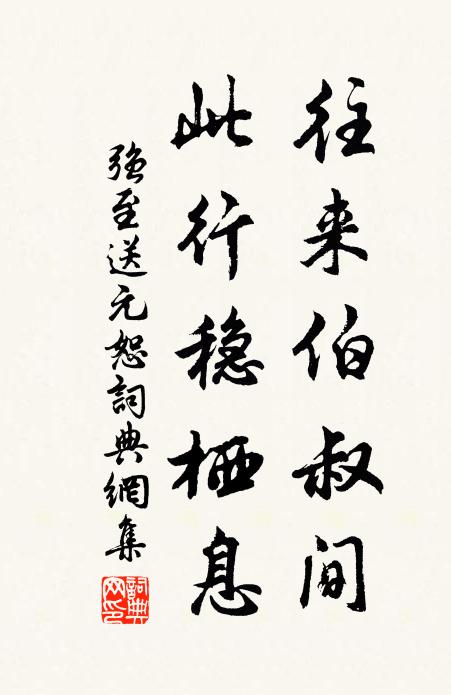 往来伯叔间
此行稳栖息
强至送元恕詞典網集
詞典
网印